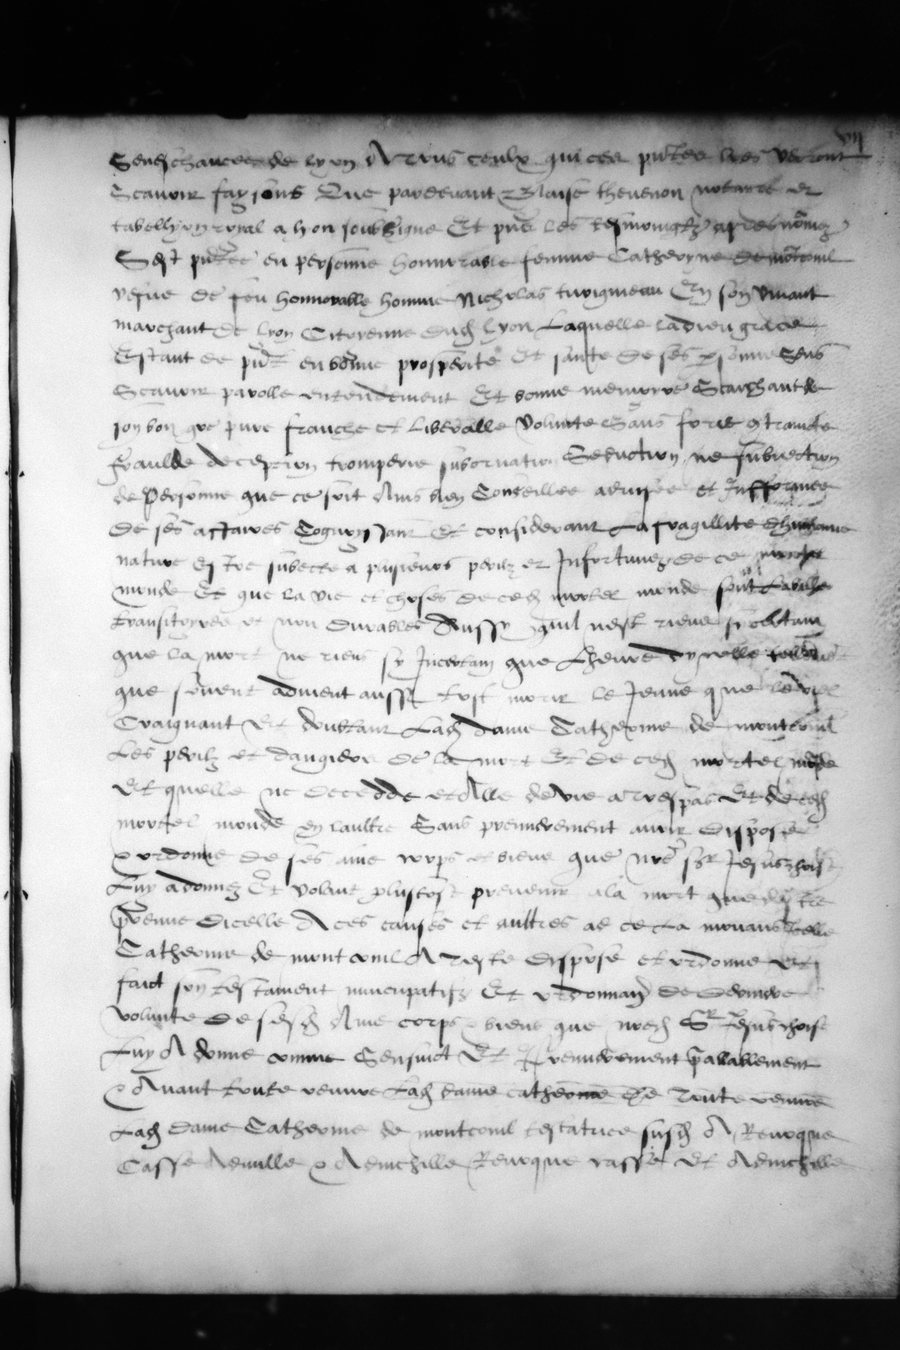 vii
Seneschaucee de lyon A tous ceulx qui ces pntes lres verront
Scavoir faisons Que pardevant Blaise thevenon notaire et
tabellyon royal a lyon soubsigne Et pns les tesmoingtz apres nomez
Sest pntee en personne honnorable femme Catheryne de montconil
vefve de feu honnorable homme Nicholas En son vivant
marchant de lyon Citoyenne dud lyon Laquelle la dieu grace
Estant de pnt en bonne prosperite Et sante de ses psonne Sens
Scavoir parolle entendement Et bonne memoyre Scaichant de
son bon gre pure franche et liberalle volunte Sans force contraincte
fraulde deception tromperie subornation Seduction ne subvection
de personne que ce soit Ains bien Conseillee advisee et
de ses affaires Cognoissant Et considerant La fragillite dhumaine
nature Estre subecte a plusieurs perilz et Infortunez de ce
monde Et que la vie et choses de ced mortel monde sont
transitoyres et non durables Aussy quil nest riens si certain
que la mort ne riens sy Incertain que Lheure dycelle
que souvent advient aussi tost morir le Jeune que le vieil
Craignant Et doubtant Lad dame Catherine de montconil
Les perilz et dangiers de la mort Et de ced mortel monde
Et quelle ne decedde et Alle de vie a trespas Et de ced
mortel monde en laultre Sans premierement avoir dispose
et ordonne de ses ame corps et biens que nre sr Jesuschrist
Luy a donnez Et volant plustost prevenir a la mort que destre
prevenue dicelle A ces causes et aultres ad ce la mouans Icelle
Catherine de montconil A teste dispose et ordonne Et
faict son testament nuncupatifz Et ordonnan de derniere
volunte de sesd Ame corps biens que nred Sr Jesuschrist
Luy A donne comme Sensuict Et Premierement preallablement
et Avant toute oeuvre Lad dame catherine De toute oeuvre
Lad dame Catherine de montconil testatrice susd A Revoque
Casse Adnulle et Adnichille Revoque casse Et Adnichille